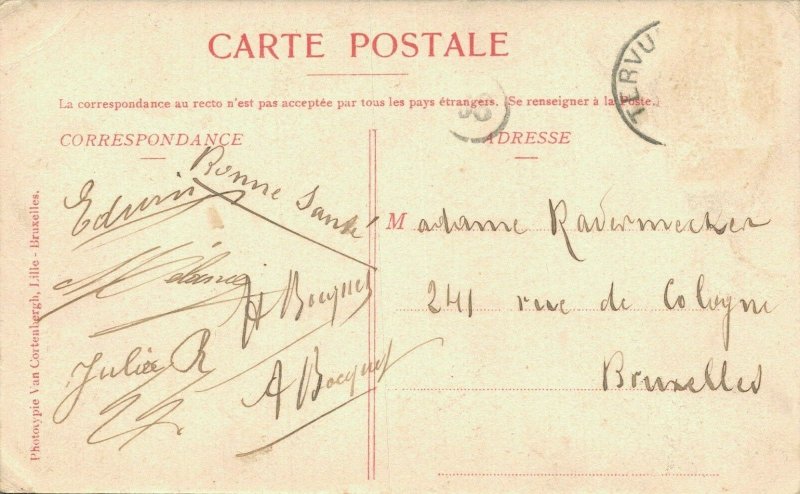 CARTE POSTALE
La correspondance au recto n'est pas acceptée par tous les pays étrangers. (Se renseigner à la Poste.)
CORRESPONDANCE
ADRESSE
TERVU
Bonne Santé
Edwin
Mélanie
H Bocquet
Julia R
A Bocquet
Madame Radermecker
241 rue de Cologne
Bruxelles
Phototypie Van Cortenbergh, Lille - Bruxelles.